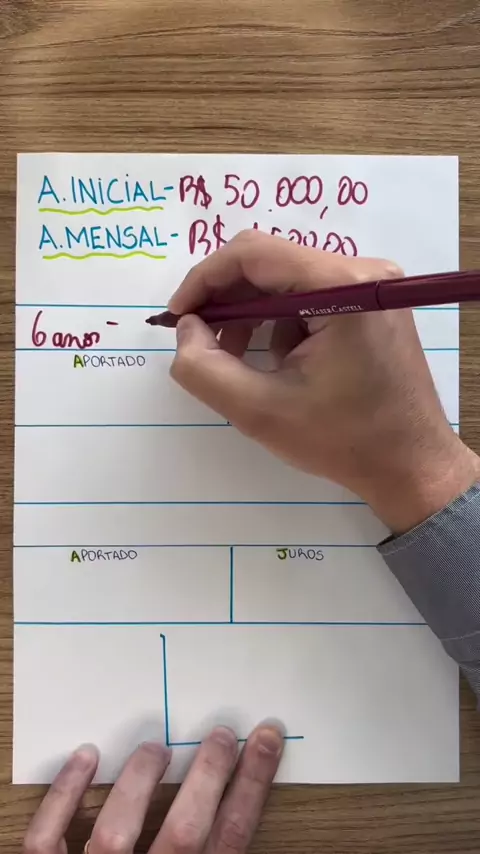 A.INICIAL- R$ 50.000,00
A.MENSAL- R$
6 anos -
APORTADO
APORTADO JUROS
FABER CASTELL